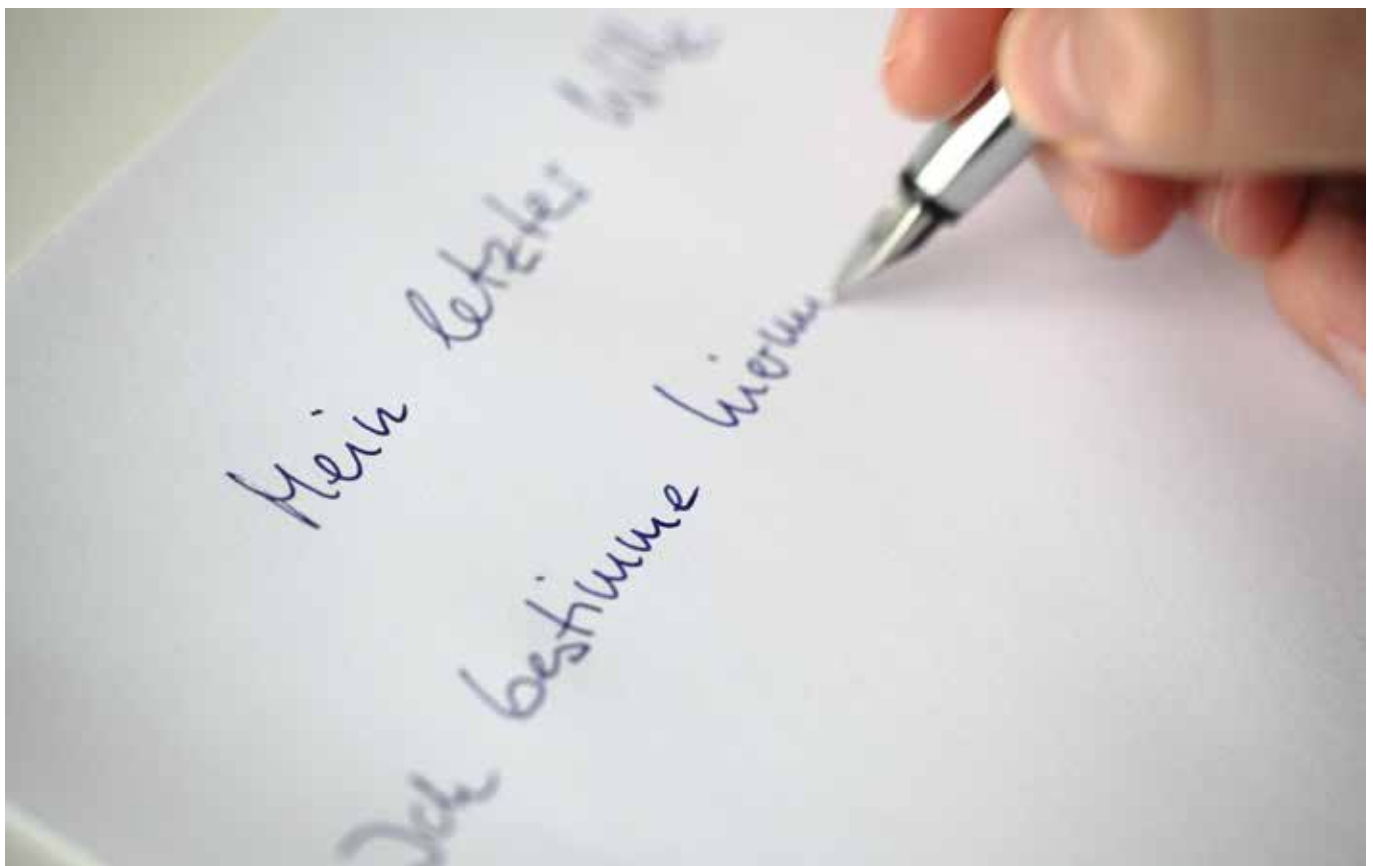 Mein letzter Wille
Ich bestimme hierm